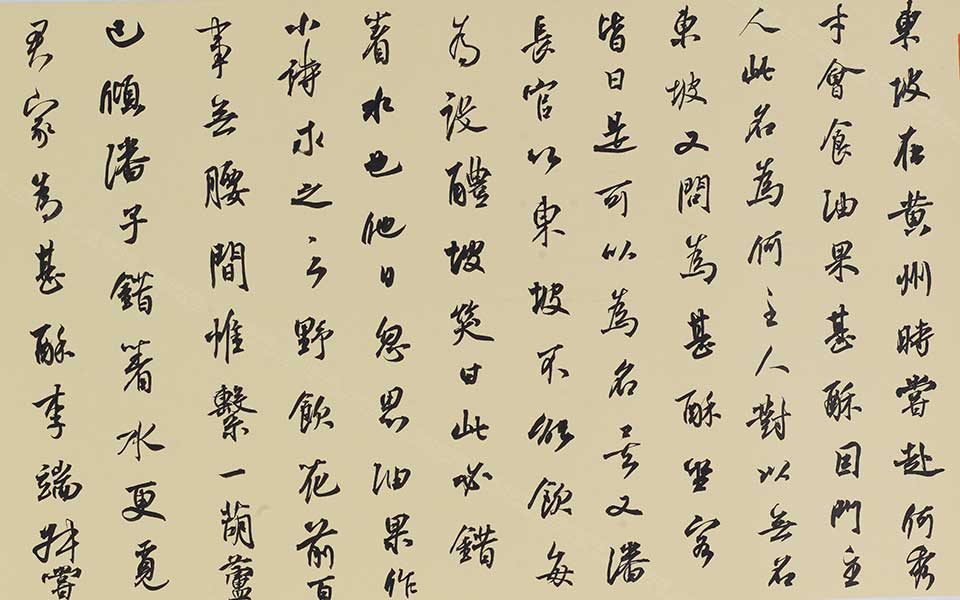 東坡在黄州時嘗赴何秀
才會食油果甚酥因問主
人此名為何主人對以無名
東坡又問為甚酥坐客
皆曰是可以為名矣又潘
長官以東坡不能飲每
為設醴坡笑曰此必錯
着水也他日忽思油果作
小詩求之云野飲花前百
事無腰間惟繫一葫蘆
已傾潘子錯着水更覓
君家為甚酥李端叔嘗